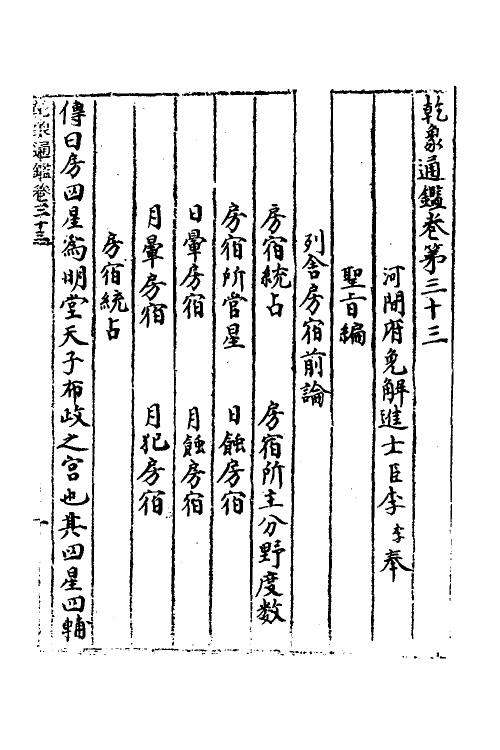 乾象通鑑卷第三十三
河間府免解進士臣李季奉
聖旨編
列舍房宿前論
房宿統占　房宿所主分野度数
房宿所管星　日蝕房宿
日暈房宿　月蝕房宿
月暈房宿　月犯房宿
房宿統占
傳曰房四星為明堂天子布政之宮也其四星四輔
乾象通鑑卷三十三